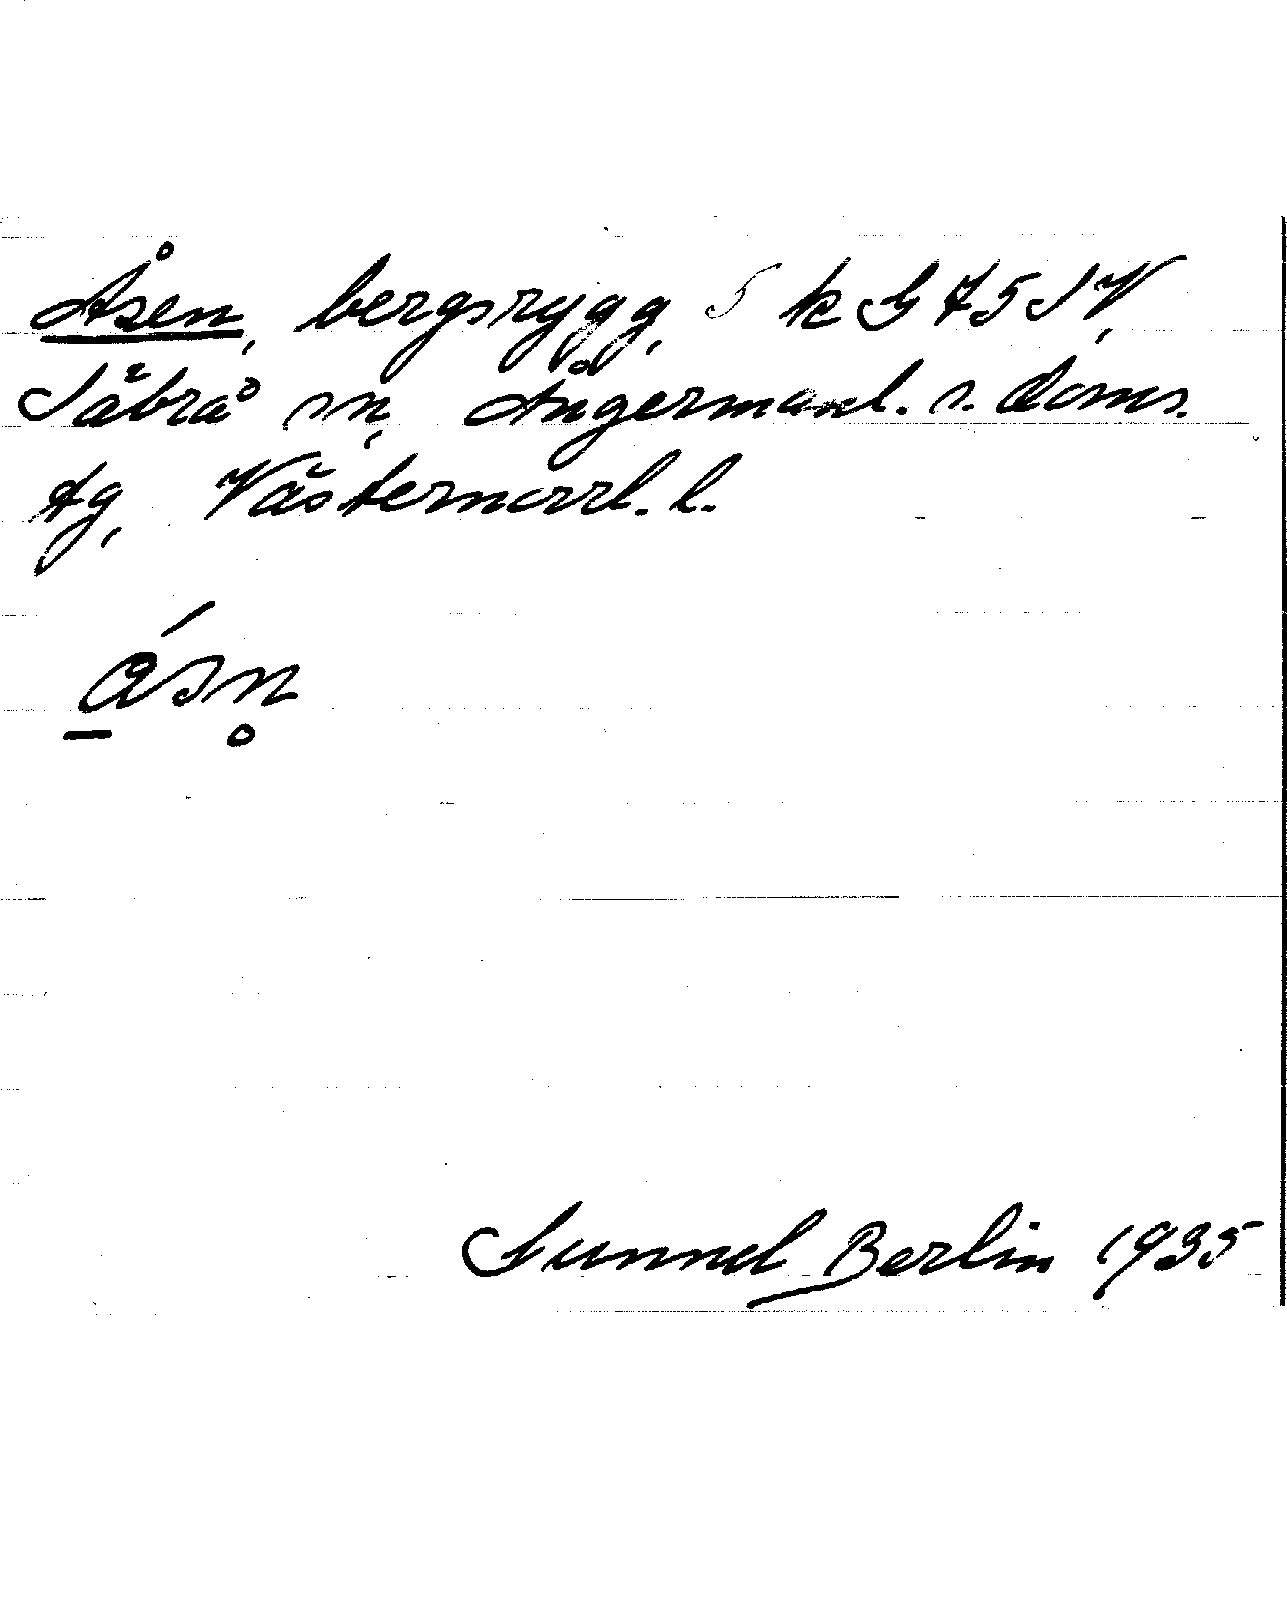 Åsen, bergsrygg, 5 k G 75 SV,
Säbrå sn, Ångermanl. s. doms.
tg, Västernorrl. l.
ásn̥
Gunnel Berlin 1935